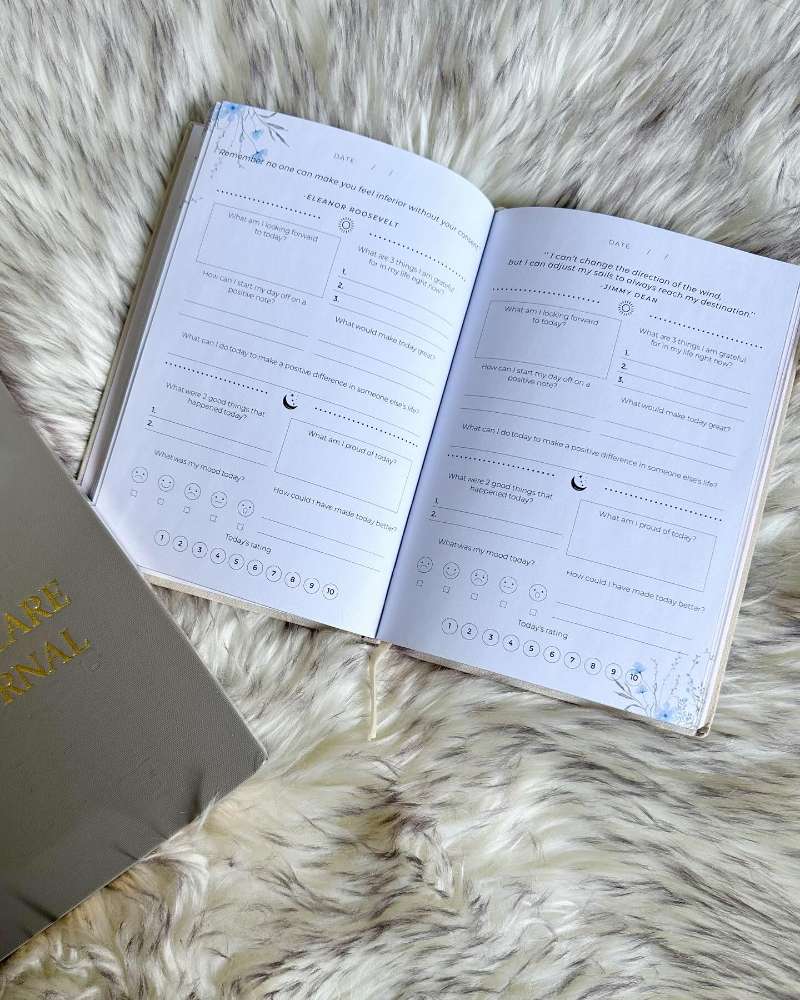 DATE / /
"Remember no one can make you feel inferior without your consent"
-ELEANOR ROOSEVELT
What am I looking forward
to today?
What are 3 things I am grateful
for in my life right now?
1.
2.
3.
How can I start my day off on a
positive note?
What would make today great?
What can I do today to make a positive difference in someone else's life?
What were 2 good things that
happened today?
1.
2.
What am I proud of today?
What was my mood today?
How could I have made today better?
Today's rating
1 2 3 4 5 6 7 8 9 10
DATE / /
"I can't change the direction of the wind,
but I can adjust my sails to always reach my destination."
-JIMMY DEAN
What am I looking forward
to today?
What are 3 things I am grateful
for in my life right now?
1.
2.
3.
How can I start my day off on a
positive note?
What would make today great?
What can I do today to make a positive difference in someone else's life?
What were 2 good things that
happened today?
1.
2.
What am I proud of today?
What was my mood today?
How could I have made today better?
Today's rating
1 2 3 4 5 6 7 8 9 10